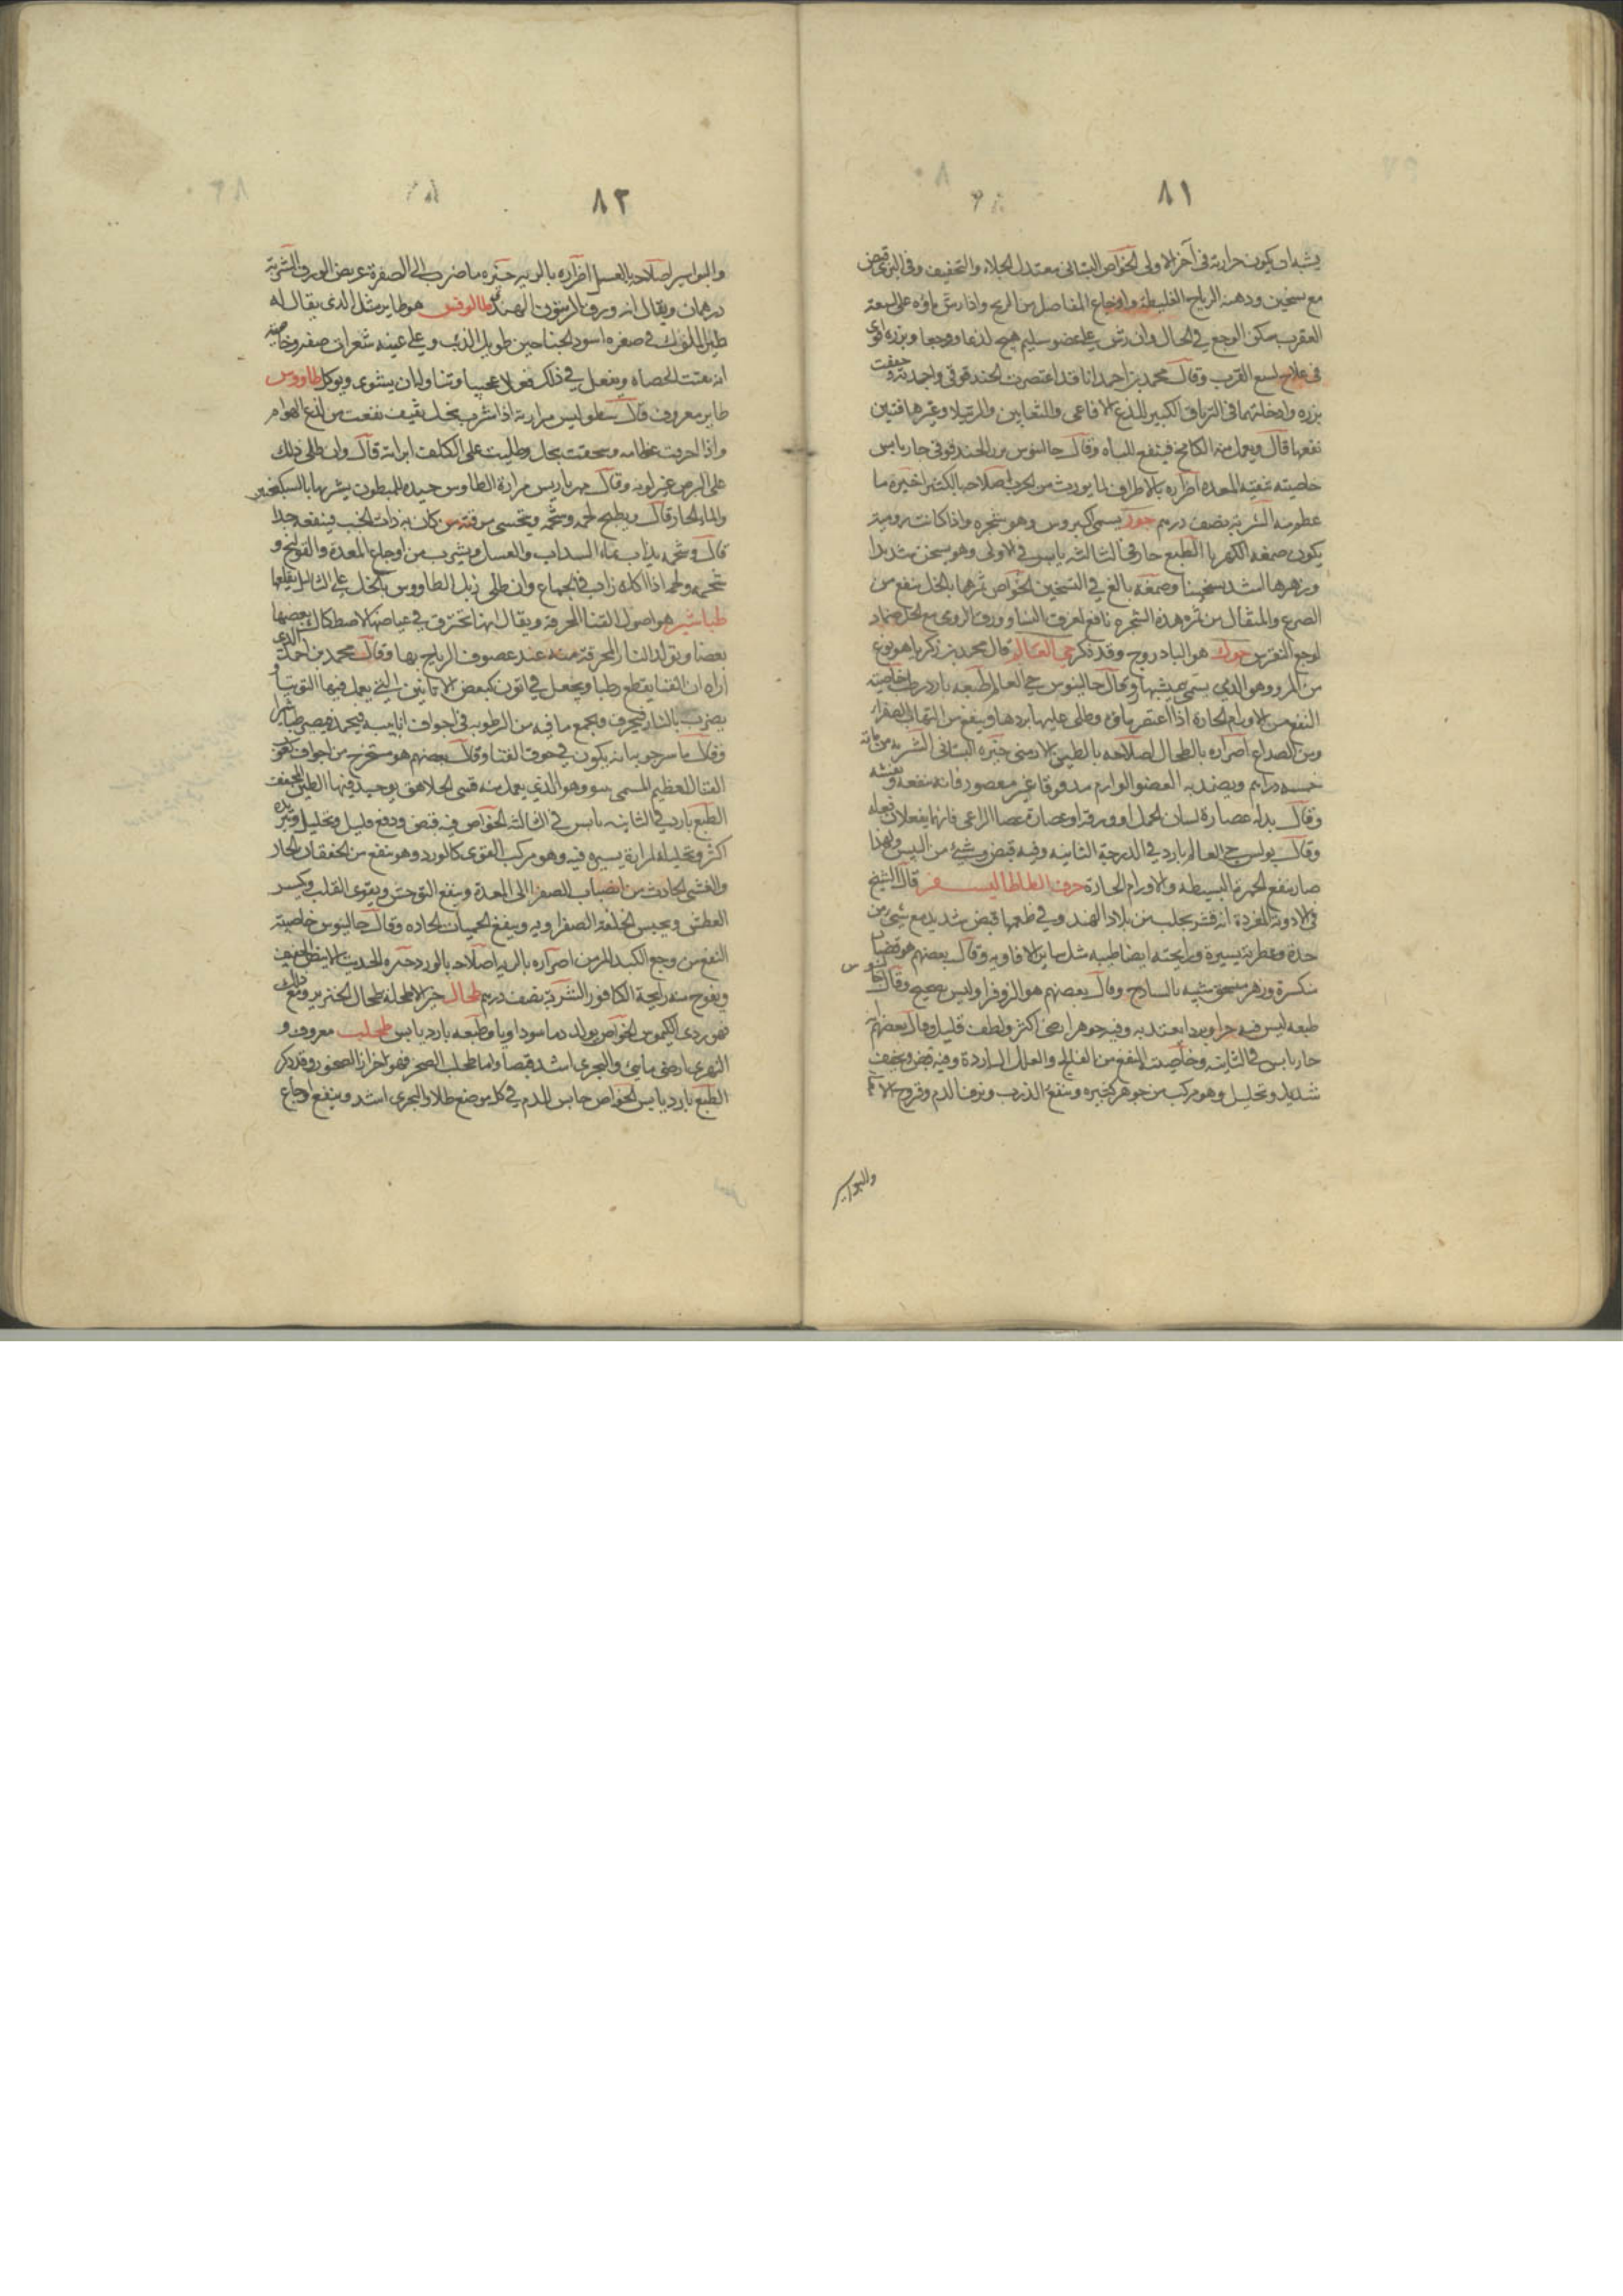 ٨١
يشبه ان يكون حرارته في آخر الاولى الخواص البستاني معتدل الجلاء والتجفيف وفي البري قبض
مع تسخين ودهنه الرياح الغليظة واوجاع المفاصل من الريح واذا رش ماؤه على لسعة
العقرب سكن الوجع في الحال وان رش على عضو سليم هيج لذعا ووجعا وبزره اقوى
في علاج لسع القرب وقال محمد بن احمد انا قد اعتصرت الحندقوقي واجمدته وجففت
بزره وادخلتهما في الترياق الكبير للذع الافاعي والثعابين والرتيلا وغيرها فتبين
نفعها قال ويعمل منه الكامخ فينفع للباه وقال جالينوس بزر الحندقوقي حار يابس
خاصيته تنقية المعدة اضراره بالاطراف لما يورث من الحرب اصلاحه الكثيرا خيره ما
عظم منه الشربة نصف درهم جوز يسمى اكيروس وهو شجره واذا كانت رومية
يكون صمغه الكهربا الطبع حار في الثالثه يابس في الاولى وهو يسخن شديدا
وزهرها اشد تسخينا وصمغه بالغ في التسخين الخواص ثمرها بالخل ينفع من
الصرع والمثقال من ثمره هذه الشجره نافع لعرق النسا وورق الرومي مع الخل ضماد
لوجع النقرس حوك هو البادروج وقد ذكر حي العالم قال محمد بن زكريا هو نوع
من المرو وهو الذي يسمى هميشبهار وقال جالينوس حي العالم طبعه بارد رطب خاصيته
النفع من الاورام الحارة اذا اعتصر ماؤه وطلى عليها بردها وينفع من التهاب الصفرا
ومن الصداع اضراره بالطحال اصلاحه بالطين الارمني خيره البستاني الشربة من مائه
خمسه دراهم ويضمد به العضو الوارم مدقوقا غير معصور فانه ينفعه
وقال بدله عصارة لسان الحمل او ورقه او عصارة عصا الراعي فانهما يفعلان فعله
وقال بولس حي العالم بارد في الدرجة الثانيه وفيه قبض وشيء من اليبس ولهذا
صار ينفع الحمرة البسيطه والاورام الحارة حرف الطا طاليسفر قال الشيخ
في الادوية المفردة انه قشر يجلب من بلاد الهند وفي طعمها قبض شديد مع شيء من
حدة وعطرية يسيرة ورايحته ايضا طيبه مثل ساير الافاويه وقال بعضهم هو قضبان
منكسرة وزهر منسحق شبيه بالساذج وقال بعضهم هو الزوفرا وليس بصحيح وقال جالينوس
طبعه ليس فيه حر او برد يعتد به وفيه جوهر ارضي اكثر ولطف قليل وقال بعضهم انه
حار يابس في الثانيه وخاصيته النفع من الفالج والعلل الباردة وفيه قبض وتجفيف
شديد وتحليل وهو مركب من جواهر كثيره وينفع الذرب ونزف الدم وقروح الامعا
والبواسير
٨٢
والبواسير اصلاحه بالعسل اضراره بالريه خيره ما ضرب الى الصفرة عريض الورق الشربة
درهمان ويقال انه ورق الزيتون الهندي طالوقس هو طاير مثل الذي يقال له
طير الملوك في صغره اسود الجناحين طويل الذنب وعلى عينيه شعرات صفر وخاصيته
انه يفتت الحصاه ويفعل في ذلك فعلا عجيبا وتناوله ان يشوى ويوكل طاووس
طاير معروف قال بيطوليس مرارته اذا شرب بخل ثقيف نفعت من لذع الهوام
واذا احرقت عظامه وسحقت بخل وطليت على الكلف ابراته قال وان طلي ذلك
على البرص غير لونه وقال مهرياريس مرارة الطاوس جيده للمبطون يشربها بالسكنجبين
والماء الحار قال ويطبخ لحمه وشحمه ويتحسى مرقته من كان به ذات الجنب فينفعه جدا
قال وشحمه يذاب بماء السداب والعسل ويشرب من اوجاع المعدة والقولنج و
شحمه ولحمه اذا اكل زاد في الجماع وان طلى زبل الطاووس بالخل على الثاليل يقلعها
طباشير هو اصول القنا المحرقة ويقال انها تحترق في غياضها لاصطكاك بعضها
بعضا وتولد النار المحرقه منه عند عصوف الرياح بها وقال محمد بن احمد الذي
اراه ان القنا يقطع رطبا ويجعل في اتون كبعض الاتانين التي يعمل فيها التوتيا و
يضرب بالنار فيحرق ويجمع ما فيه من الرطوبه في اجواف انابيبه فيجمد فيصير طباشيرا
وقال ماسرجويه انه يكون في جوف القنا وقال بعضهم هو مستخرج من اجواف
القنا العظيم المسمى بسو وهو الذي يعمل منه قسي الجلاهق يوجد فيها الطين المجفف
الطبع بارد في الثانيه يابس في الثالثة الخواص فيه قبض ودفع قليل وتحليل وتبريده
اكثر وتحليله لمرارة يسيره فيه وهو مركب القوى كالورد وهو ينفع من الخفقان الحار
والغشي الحادث من انصباب الصفرا الى المعدة وينفع التوحش ويقوى القلب ويكسر
العطش ويحبس الخلفة الصفراويه وينفع الحميات الحاده وقال جالينوس خاصيته
النفع من وجع الكبد المزمن اضراره بالريه اصلاحه بالورد خيره الحديث الابيض الخفيف
ويفوح منه رايحة الكافور الشربة نصف درهم طحال خير الاطحله طحال الخنزير ومع ذلك
فهو ردي الكيموس الخواص يولد دما سوداويا وطبعه بارد يابس طحلب معروف و
النهري ارضي مايي والبحري اشد قبضا واما طحلب الصخر فهو حزاز الصخور وقد ذكر
الطبع بارد يابس الخواص حابس للدم في كل موضع طلاء والبحري اشد وينفع اوجاع